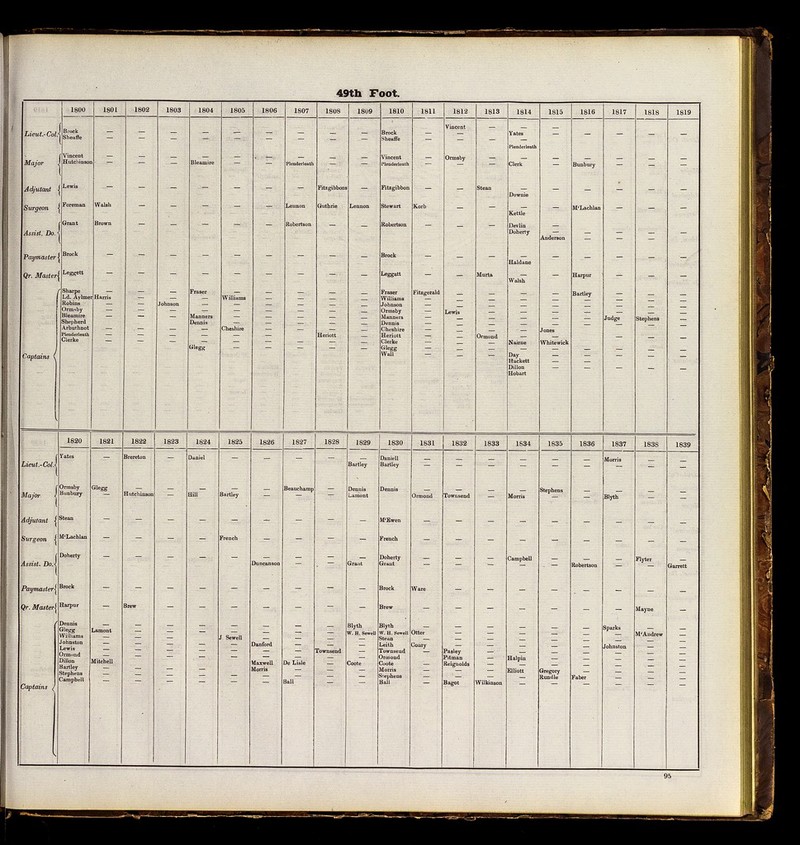 49th Foot.
1800 1801 1802 1803 1804 1805 1806 1807 1808 1809 1810 1811 1812 1813 1814 1815 1816 1817 1818 1819
Vincent — — —
Lieut.-Col. Brock — — — — — — — — — Brock — — — Yates — — — — —
Sheaffe — — — — — — — — — Sheaffe — — — —
Plenderleath
Major Vincent — — — — — — — — — Vincent — Ormsby — — — — — — —
Hutchinson — — — Bleamire — — Plenderleath — — Plenderleath — — — Clerk — Bunbury — — —
Adjutant Lewis — — — — — — — Fitzgibbons — Fitzgibbon — — Stean — — — — — —
Downie
Surgeon Foreman Walsh — — — — — Lennon Guthrie Lennon Stewart Korb — — — — M'Lachlan — — —
Kettle
Assist. Do. Grant Brown — — — — — Robertson — — Robertson — — — Devlin —
Doherty — — — — —
Anderson — — — —
Paymaster Brock — — — — — — — — — Brock — — — — — — — — —
Haldane
Qr. Master Leggett — — — — — — — — — Leggett — — Murta — — Harpur — — —
Walsh
Captains Sharpe — — — Fraser — — — — — Fraser Fitzgerald — — — — Bartley — — —
Ld. Aylmer Harris — — — Williams — — — — Williams — — — — — — — — —
Robins — — Johnson — — — — — — Johnson — — — — — — — — —
Ormsby — — — — — — — — — Ormsby — Lewis — — — — — — —
Bleamire — — — Manners — — — — — Manners — — — — — — Judge Stephens —
Shepherd — — — Dennis — — — — — Dennis — — — — — — — — —
Arburhnot — — — — Cheshire — — — — Cheshire — — — — Jones — — — —
Plenderleath — — — — — — — Heriott — Heriott — — Ormond — — — — — —
Clerke — — — — — — — — — Clerke — — — Nairne Whitewick — — — —
Glegg — — — — — Glegg — — — — — — — — —
Wall — — — Day — — — — —
Hackett — — — — —
Dillon — — — — —
Hobart
1820 1821 1822 1823 1824 1825 1826 1827 1828 1829 1830 1831 1832 1833 1834 1835 1836 1837 1838 1839
Lieut.-Col. Yates — Brereton — Daniel — — — — — Daniell — — — — — — Morris — —
Bartley Bartley — — — — — — — — —
Major Ormsby Glegg — — — — — Beauchamp — Dennis Dennis — — — — Stephens — — — —
Bunbury — Hutchinson — Hill Bartley — — — Lamont Ormond Townsend — Morris — — Blyth — —
Adjutant Stean — — — — — — — — — M'Ewen — — — — — — — — —
Surgeon M'Lachlan — — — — French — — — — French — — — — — — — — —
Assist. Do. Doherty — — — — — — — — — Doherty — — — Campbell — — — Flyter —
Duncanson — — Grant Grant — — — — — Robertson — — Garrett
Paymaster Brock — — — — — — — — — Brock Ware — — — — — — — —
Qr. Master Harpur — Brew — — — — — — — Brew — — — — — — — Mayne —
Captains Dennis — — — — — — — — Blyth Blyth — — — — — — Sparks — —
Glegg Lamont — — — — — — — W. H. Sewell W. H. Sewell Otter — — — — — — M'Andrew —
Williams — — — — J. Sewell — — — — Stean — — — — — — — — —
Johnston — — — — — Danford — — — Leith Coury — — — — — Johnston — —
Lewis — — — — — — — Townsend — Townsend — Pasley — — — — — — —
Ormond — — — — — — — — — Ormond — Pitman — Halpin — — — — —
Dillon Mitchell — — — — Maxwell De Lisle — Coote Coote — Reignolds — — — — — — —
Bartley — — — — — Morris — — — Morris — — — Elliott Gregory — — — —
Stephens — — — — — — — — — Stephens — — — — Rundle Faber — — —
Campbell — — — — — — Ball — — Ball — Bagot Wilkinson — — — — — —
95